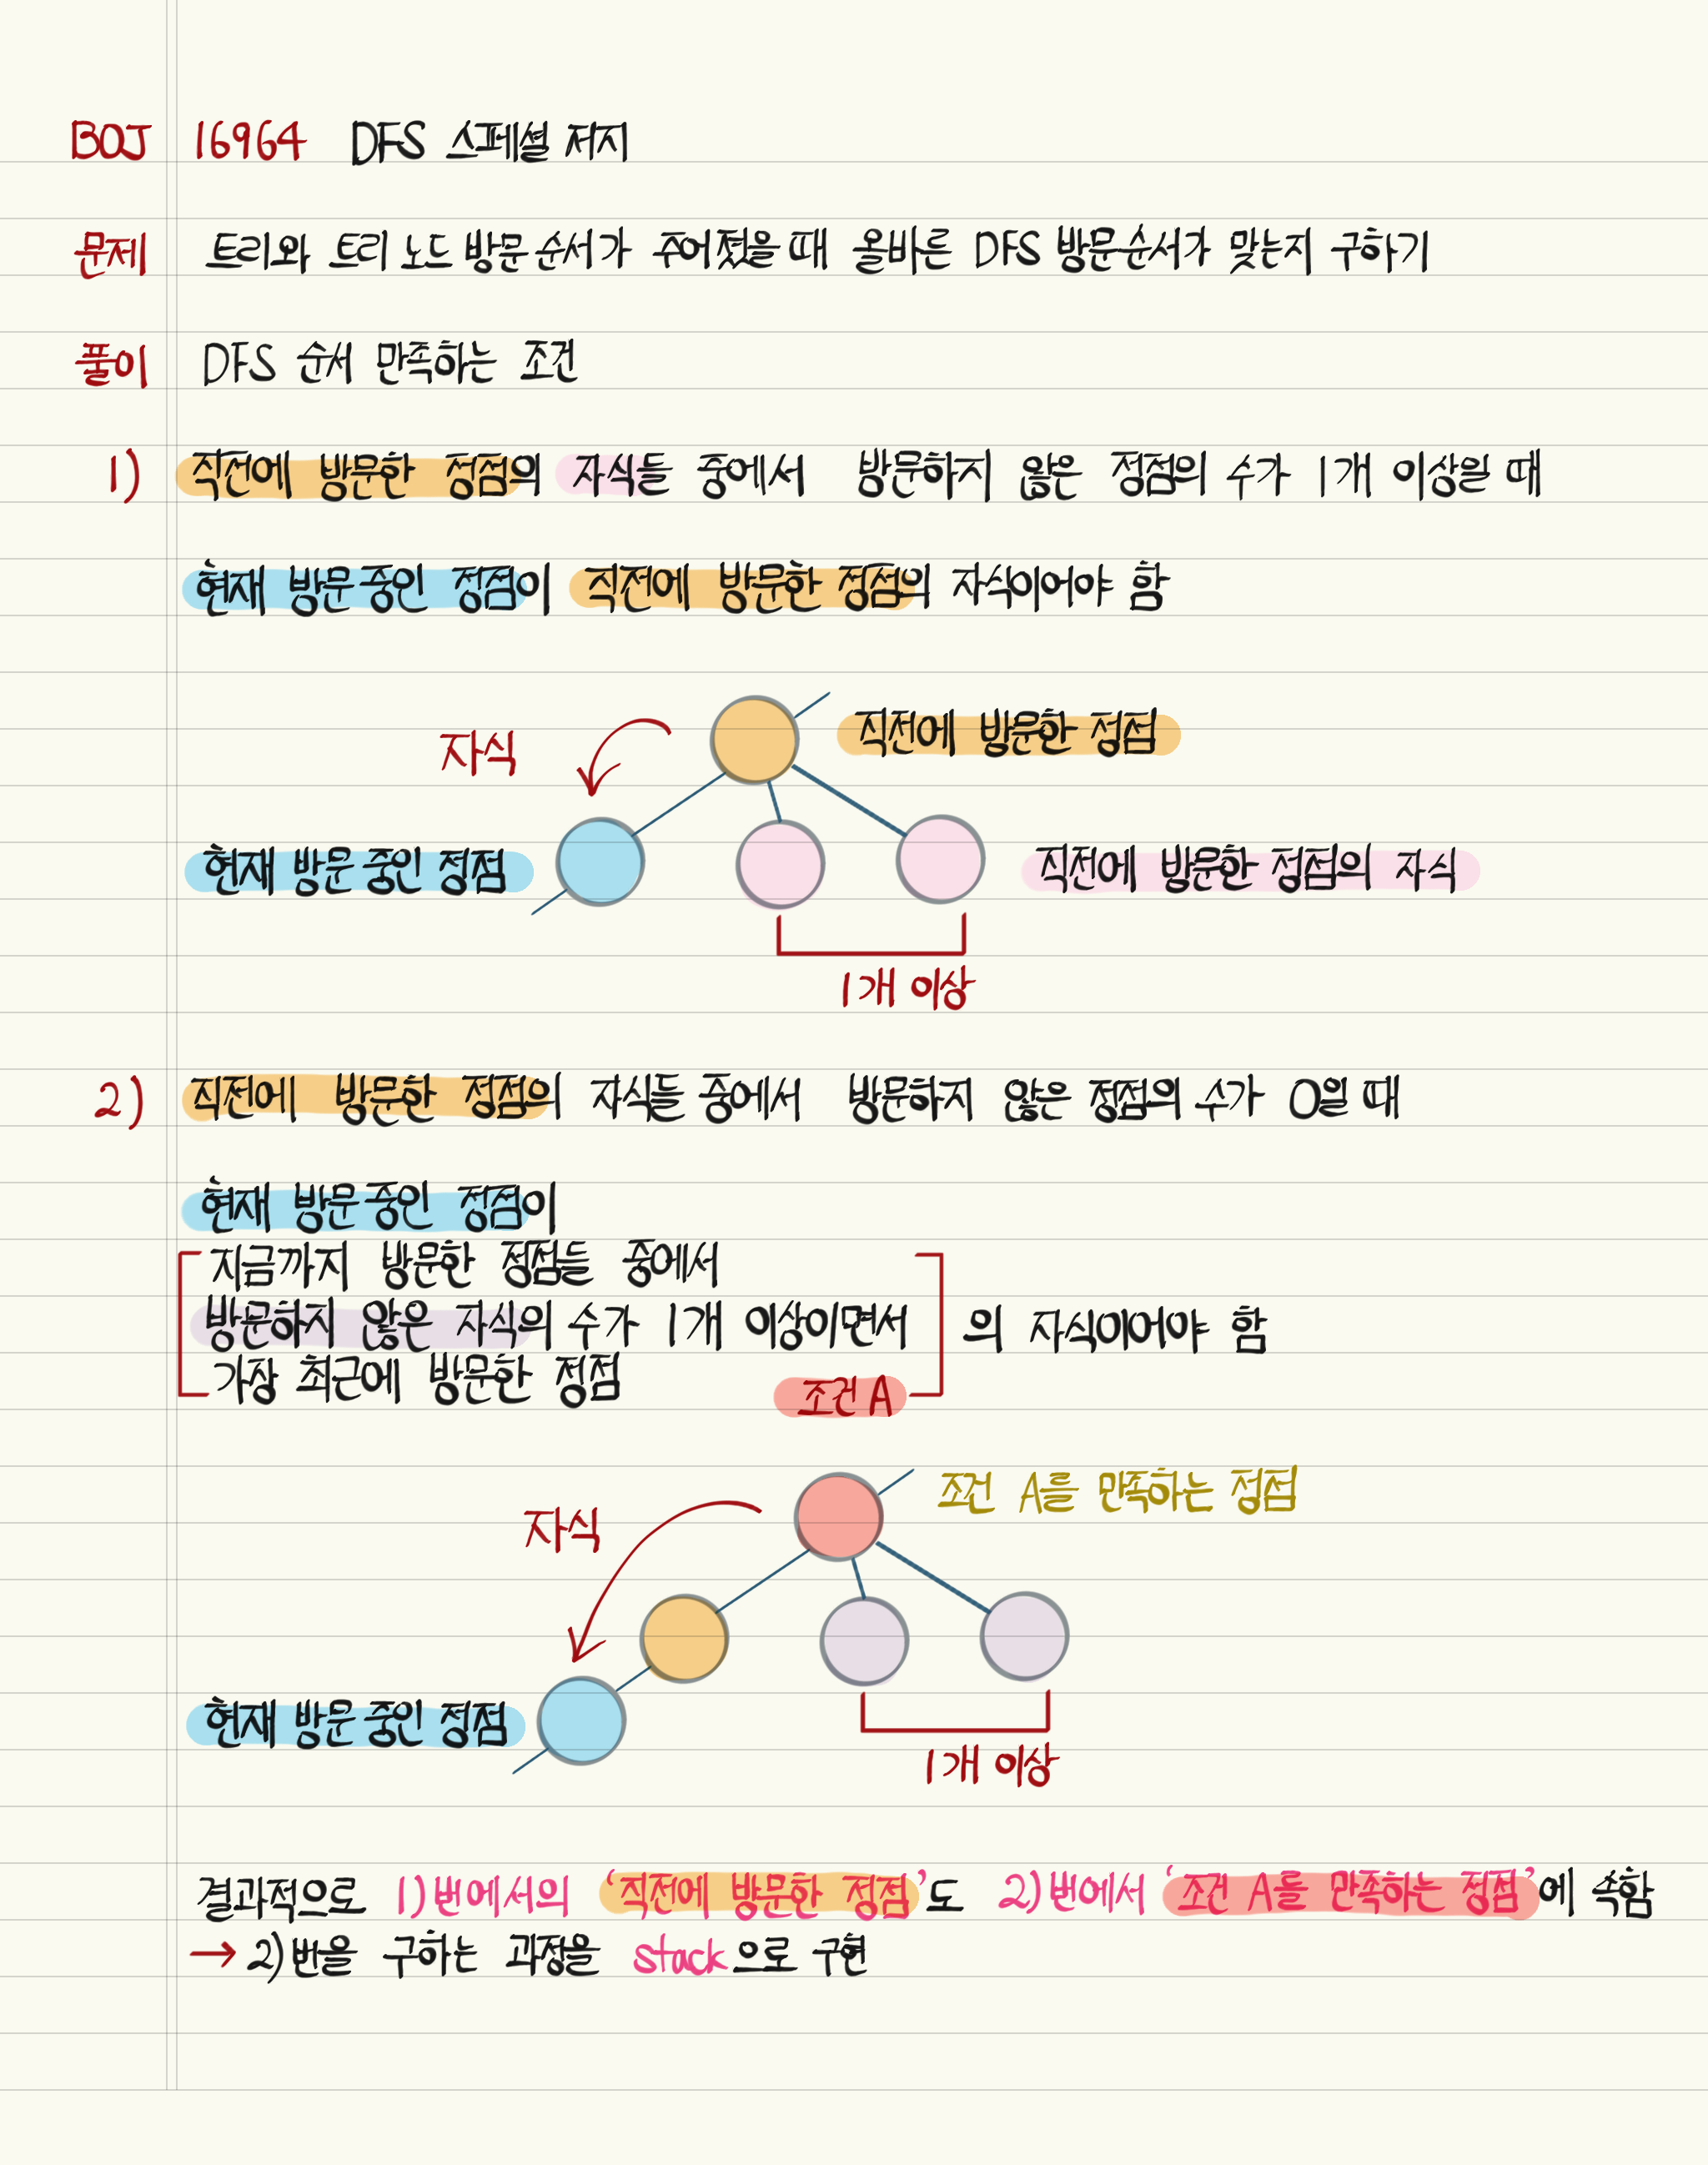 BOJ 16964 DFS 스페셜 저지
문제 트리와 트리 노드 방문 순서가 주어졌을 때 올바른 DFS 방문순서가 맞는지 구하기
풀이 DFS 순서 만족하는 조건
1) 직전에 방문한 정점의 자식들 중에서 방문하지 않은 정점의 수가 1개 이상일 때
현재 방문 중인 정점이 직전에 방문한 정점의 자식이어야 함
직전에 방문한 정점
자식
현재 방문 중인 정점
직전에 방문한 정점의 자식
1개 이상
2) 직전에 방문한 정점의 자식들 중에서 방문하지 않은 정점의 수가 0일 때
현재 방문 중인 정점이
지금까지 방문한 정점들 중에서
방문하지 않은 자식의 수가 1개 이상이면서 의 자식이어야 함
가장 최근에 방문한 정점
조건 A
조건 A를 만족하는 정점
자식
현재 방문 중인 정점
1개 이상
결과적으로 1)번에서의 '직전에 방문한 정점'도 2)번에서 '조건 A를 만족하는 정점'에 속함
→ 2)번을 구하는 과정을 stack으로 구현